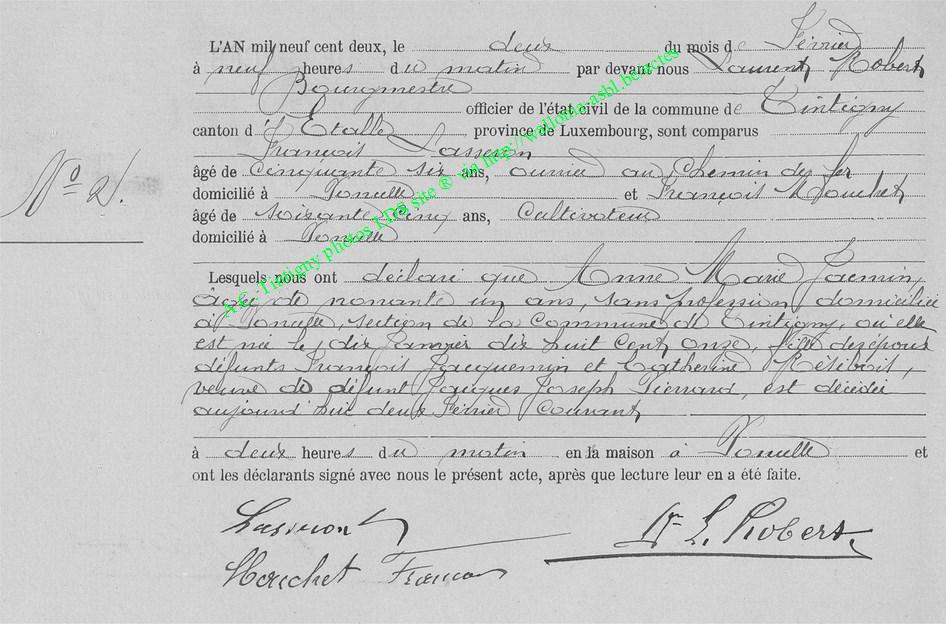 L'AN mil neuf cent deux, le deux du mois de Février
à neuf heures du matin par devant nous Laurent Robert
Bourgmestre
officier de l'état civil de la commune de Tintigny
canton d'Etalle, province de Luxembourg, sont comparus
François Lasseron
âgé de cinquante six ans, ouvrier au Chemin de fer
domicilié à Poncelle et François Mouchet,
âgé de soixante cinq ans, Cultivateur
domicilié à Poncelle
Nº 2.
Lesquels nous ont déclaré que Anne Marie Jacmin,
âgée de nonante un ans, sans profession domiciliée
à Poncelle, section de la commune de Tintigny, où elle
est née le dix Janvier dix huit cent onze, fille des époux
défunts François Jacquemin et Catherine
veuve de défunt Jacques Joseph Pierrard, est décédée
aujourd'hui deux Février courant,
à deux heures du matin en la maison à Poncelle et
ont les déclarants signé avec nous le présent acte, après que lecture leur en a été faite.
L. Robert
Mouchet François
A.C. Tintigny photos LDS site ® via http://wallonia-asbl.be/actes